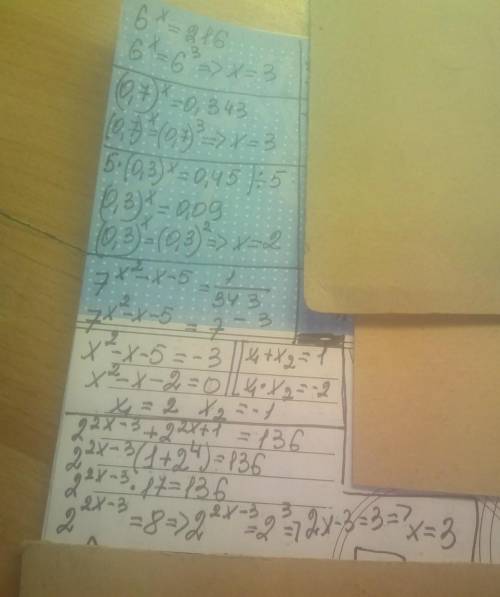 6^x = 216
6^x = 6^3 => x = 3
(0,7)^x = 0,343
(0,7)^x = (0,7)^3 => x = 3
5·(0,3)^x = 0,45 | ÷5
(0,3)^x = 0,09
(0,3)^x = (0,3)^2 => x = 2
7^{x^2-x-5} = 1/343
7^{x^2-x-5} = 7^{-3}
x^2-x-5 = -3 || x₁+x₂ = 1
x^2-x-2 = 0 || x₁·x₂ = -2
x₁ = 2 x₂ = -1
2^{2x-3} + 2^{2x+1} = 136
2^{2x-3}(1+2^4) = 136
2^{2x-3}·17 = 136
2^{2x-3} = 8 => 2^{2x-3} = 2^3 => 2x-3 = 3 => x = 3